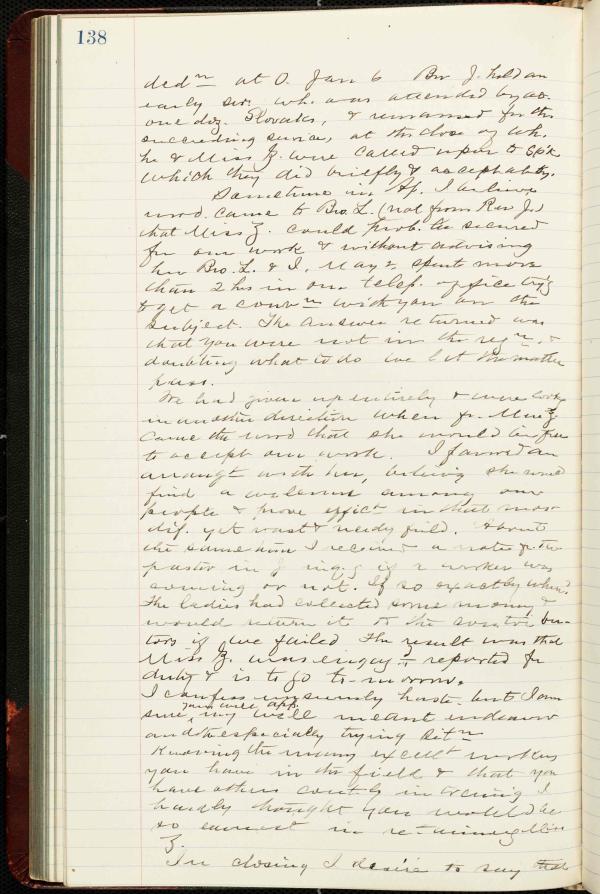 138
ded<sup>n</sup> at O. Jan 6 Bro J. held an
early ser. wh. was attended by ab.
one doz. Slovaks, & remained for the
succeeding service, at the close of wh.
he & Miss Z. were called upon to spk
which they did briefly & acceptably.
Sometime in Ap. I believe
word came to Bro. L. (not from Rev J.)
that Miss Z. could prob. be secured
for our work & without advising
her Bro. L. & I, May 2, spent more
than 2 hrs in our telep. office try'g
to get a conv<sup>n</sup> with you on the
subject. The answer returned was
that you were not in the reg<sup>n</sup>. &
doubting what to do we let the matter
pass.
We had given up entirely & were look'g
in another direction when fr. Miss Z
came the word that she would be free
to accept our work. I favored an
arrang<sup>t</sup> with her, believing she would
find a welcome among our
people & prove effic<sup>t</sup> in that most
dif. yet vast & needy field. About
the same time I received a note fr. the
pastor in J inq.g if a worker was
coming or not. If so exactly when?
The ladies had collected some money &
would return it to the contribu-
tors if we failed The result was that
Miss Z. was engag<sup>d</sup> reported for
duty & is to go to-morrow.
I confess unseemly haste. but I am
sure you will app. my well meant endeavor
and the especially trying sit<sup>n</sup>
Knowing the many excell<sup>t</sup> workers
you have in the field & that you
have others const<sup>ly</sup> in training I
hardly thought you would be
so earnest in retaining Miss
Z.
In closing I desire to say that